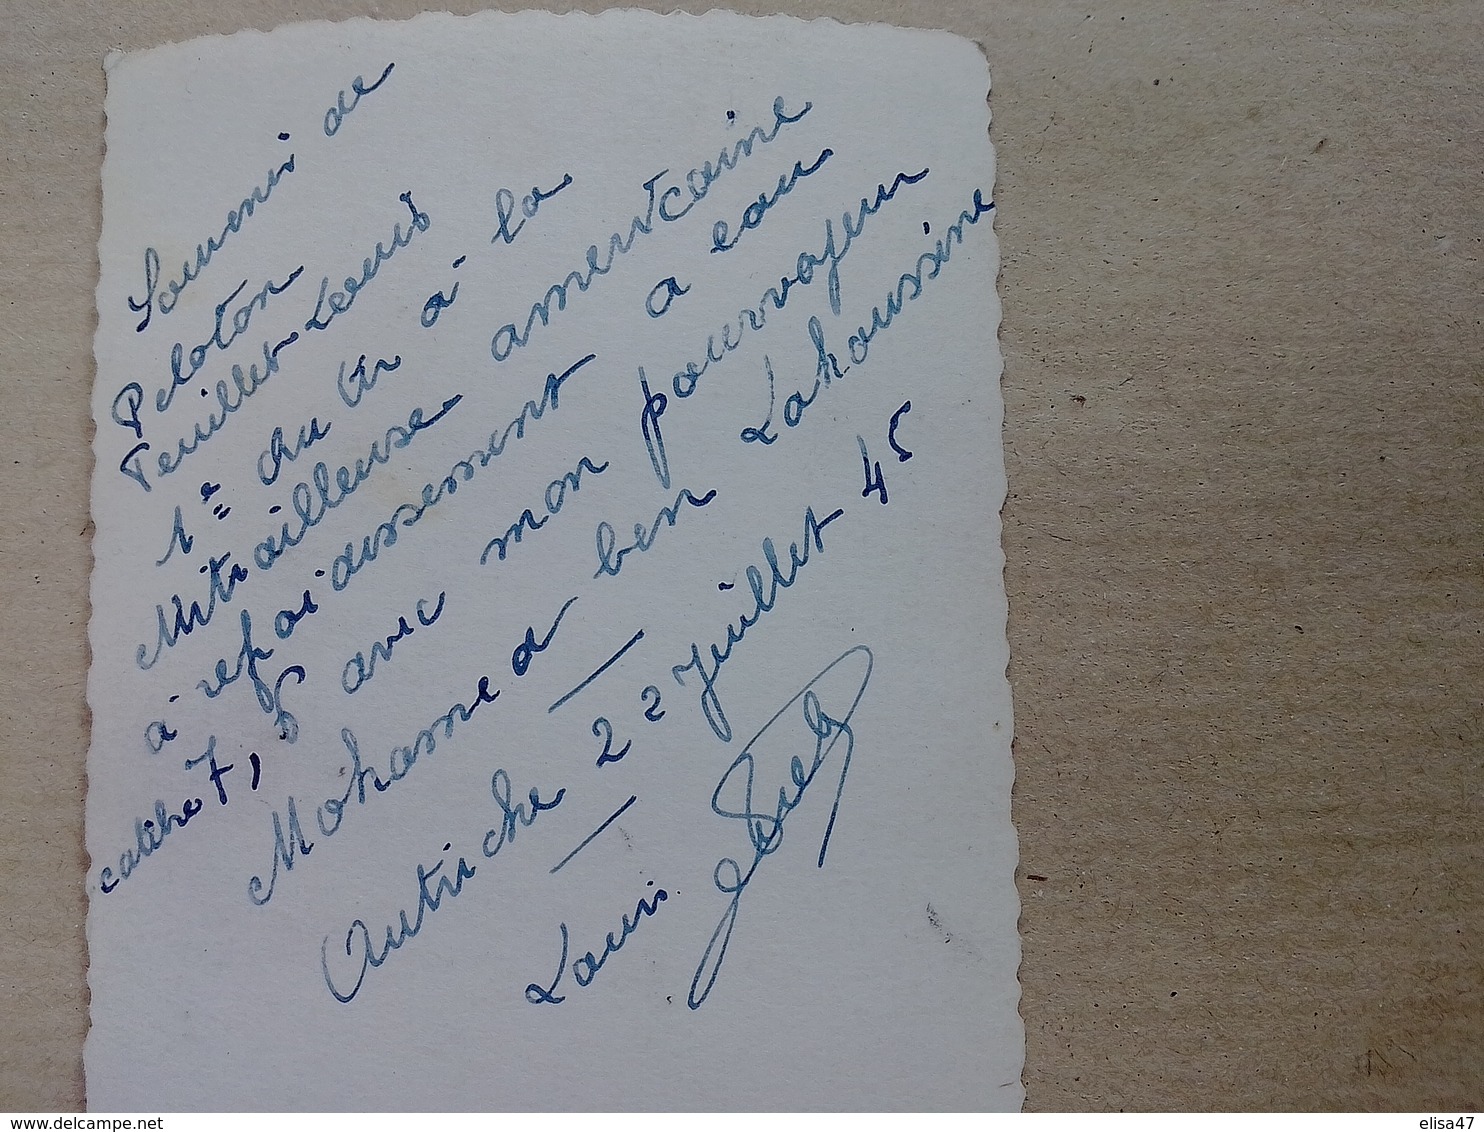 Souvenir de
Peloton
Feuillet Louis
1e au tir à la
Mitrailleuse americaine
à refroidissement a eau
calibre 7,6 avec mon pourvoyeur
Mohamed ben Lahoussine
Autriche 22 Juillet 45
Louis
elisa47